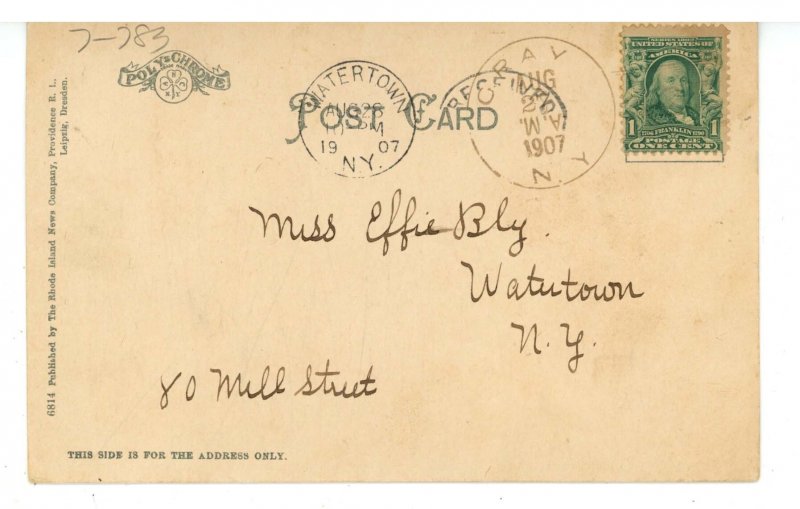 7-783
POLY-CHROME
WATERTOWN
AUG 26
11- PM
19 07
N.Y.
POST CARD
RECEIVED
AUG
A.M.
1907
N Y
SERIES 1902
UNITED STATES OF
AMERICA
1 1706 FRANKLIN 1790 1
POSTAGE
ONE CENT
6814 Published by The Rhode Island News Company, Providence R. I.,
Leipzig, Dresden.
Miss Effie Bly.
Watertown
N.Y.
80 Mill Street
THIS SIDE IS FOR THE ADDRESS ONLY.